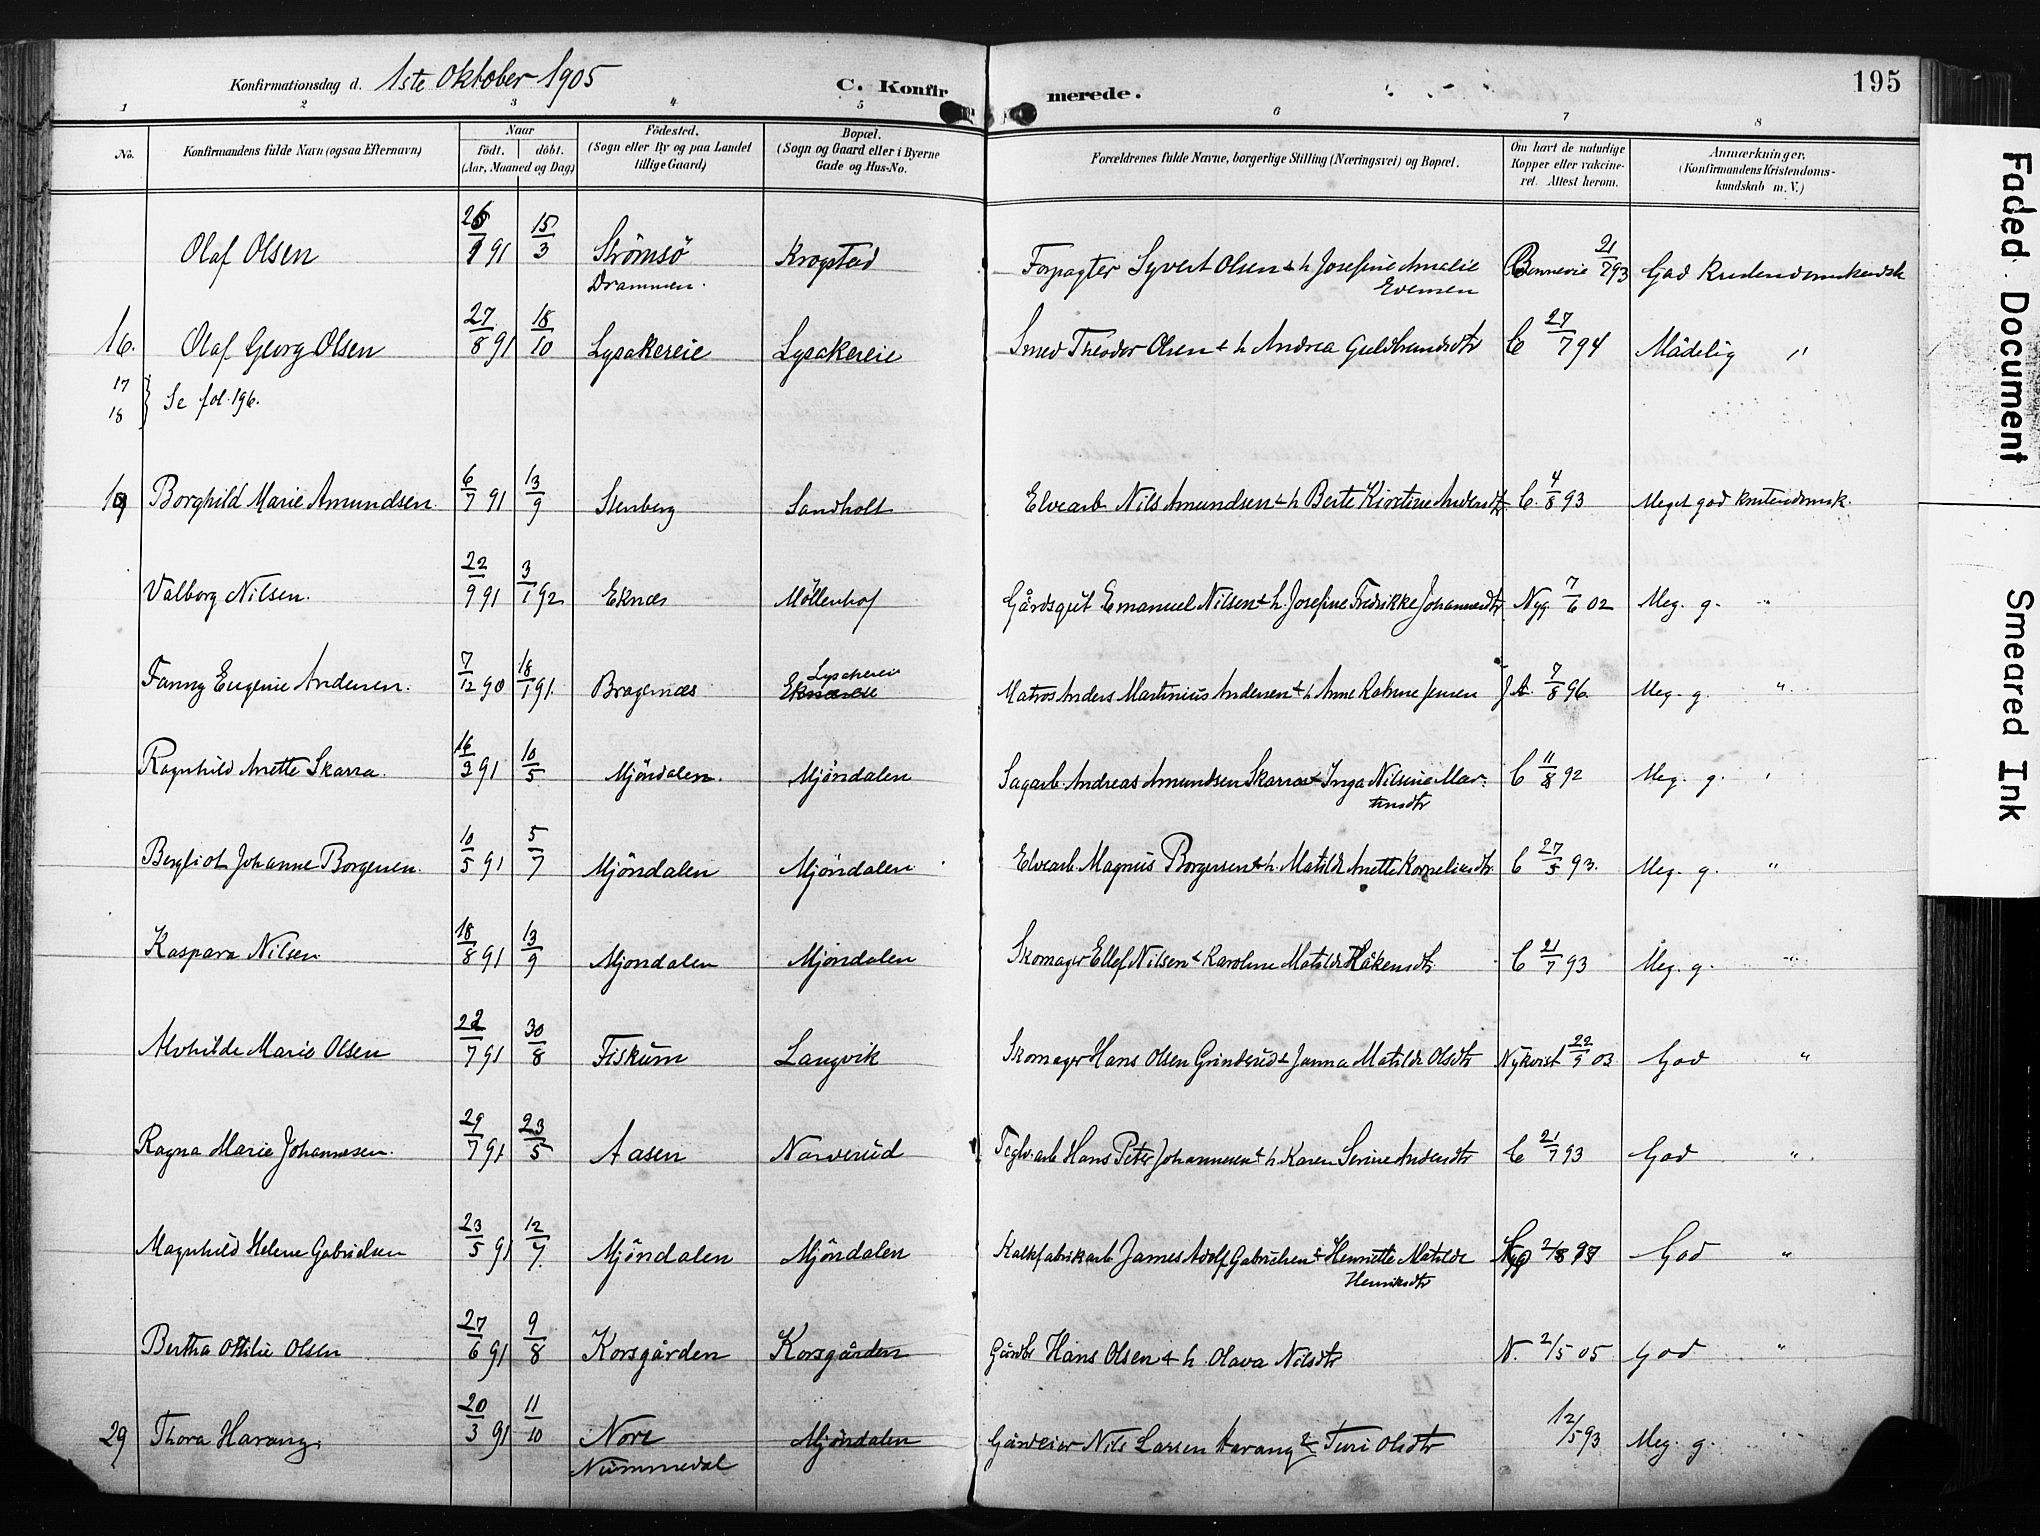 Konfirmationsdag d. 1ste Oktober 1905 C. Konfirmerede. 195
1 2 3 4 5 6 7 8
No. Konfirmandens fulde Navn (ogsaa Efternavn) Naar födt. döbt. (Aar, Maaned og Dag) Födested. (Sogn eller By og paa Landet tillige Gaard) Bopæl. (Sogn og Gaard eller i Byerne Gade og Hus-No. Forældrenes fulde Navne, borgerlige Stilling (Næringsvei) og Bopæl. Om havt de naturlige Kopper eller vakcineret. Attest herom. Anmærkninger. (Konfirmandens Kristendomskundskab m. V.)
Olaf Olsen 91 15/3 Strömsö Drammen. Krogstad Forpagter Syvert Olsen & h Josefine Amalie Evensen 21/7 93 God
16. Olaf Georg Olsen 27/8 91 18/10 Lysakereie Lysakereie Smed Theodor Olsen & h Andrea Guldbrandsdtr C 27/7 94 Mådelig "
17 18 } Se fol. 196.
19 Borghild Marie Amundsen 6/7 91 13/9 Stenberg Sandholt Elvearb. Nils Amundsen & h Berte Kirstine Andersdtr. C. 4/8 93 Meget god kristendomsk.
Valborg Nilsen. 22/9 91 3/1 92 Eknes Möllenhof Gårdsgut Emanuel Nilsen & h. Josefine Fredrikke Johannesdtr Nyg. 7/6 02 Meg. g. "
Fanny Eugenie Andersen. 7/12 90 18/1 91 Bragernæs Matros Anders Martinius Andersen & h Anne Katrine Jensen 7/8 96 Meg. g. "
Ragnhild Anette Skarra. 16/3 91 10/5 Mjöndalen. Mjöndalen Sagarb. Andreas Amundsen Skarra & Inga Nilsine Martinsdtr C 11/8 92 Meg. g. "
Bergliot Johanne Borgersen. 10/5 91 5/7 Mjöndalen Mjöndalen Elvearb. Magnus Borgersen & h. Matilde Anette Korneliusdtr. C 27/5 93. Meg. g. "
Kaspara Nilsen 18/8 91 13/9 Mjöndalen Mjöndalen Skomager Ellef Nilsen & Karoline Matilde Håkensdtr C 21/7 93 Meg. g. "
Alvhilde Marie Olsen 22/7 91 30/8 Fiskum Langvik Skomager Hans Olsen Grinderud & Janna Matilde Olsdtr Nykvist 22/9 03 God "
Ragna Marie Johannesen. 29/7 91 23/5 Aasen Narverud Teglv.arb Hans Peter Johannesen & h. Karen Serine Andersdtr C 21/7 93 God "
Magnhild Helene Gabrielsen 23/5 91 12/7 Mjöndalen Mjöndalen Kalkfabrikarb James Adolf Gabrielsen & Henriette Matilde Henriksdtr God "
Bertha Ottilie Olsen 27/6 91 9/8 Korsgården Korsgården Gårdbr Hans Olsen & h. Olava Nilsdtr N. 2/5 05 God "
29 Thora Harang. 20/3 91 11/10 Nore Nummedal Mjöndalen Gårdeier Nils Larsen Harang & Turi Olsdtr 12/5 93 Meg. g. "
Faded Document
Smeared Ink